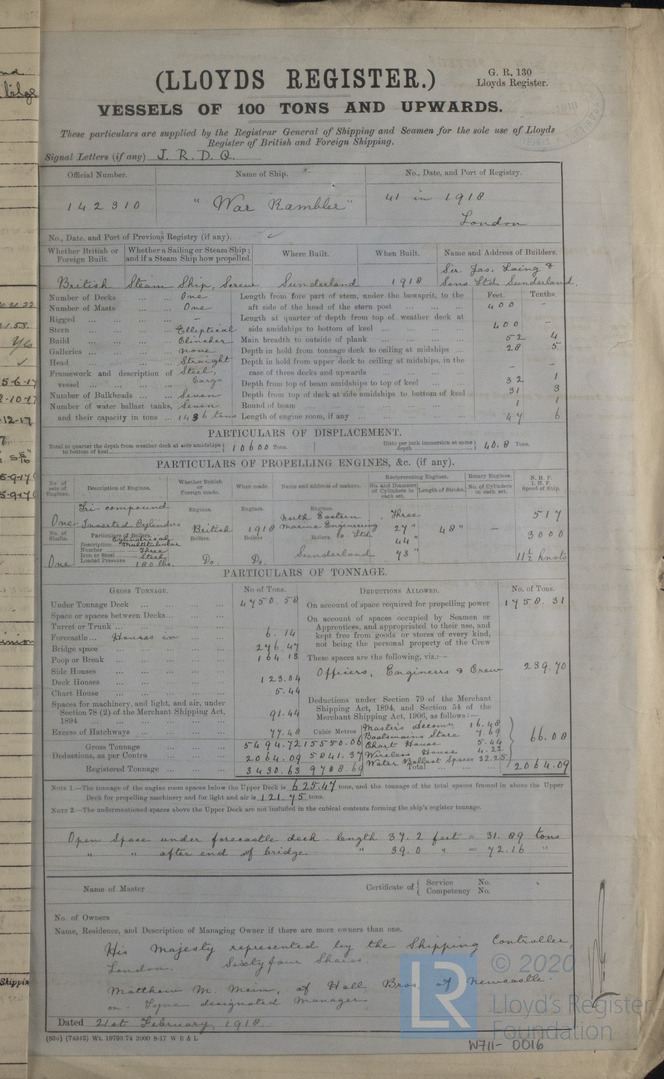 (LLOYDS REGISTER.)
G. R. 130
Lloyds Register.
VESSELS OF 100 TONS AND UPWARDS.
These particulars are supplied by the Registrar General of Shipping and Seamen for the sole use of Lloyds
Register of British and Foreign Shipping.
Signal Letters (if any) J. R. D. Q.
Official Number. Name of Ship. No., Date, and Port of Registry.
142310 "War Rambler" 41 in 1918
London
No., Date, and Port of Previous Registry (if any).
Whether British or Foreign Built. Whether a Sailing or Steam Ship; and if a Steam Ship how propelled. Where Built. When Built. Name and Address of Builders.
British Steam Ship, Screw Sunderland 1918 Sir Jas. Laing & Sons Ltd. Sunderland.
Feet. Tenths.
Number of Decks ... One Length from fore part of stem, under the bowsprit, to the
Number of Masts ... One aft side of the head of the stern post ... 400 -
Rigged ... - Length at quarter of depth from top of weather deck at
Stern ... Elliptical side amidships to bottom of keel ... 400 -
Build ... Clincher Main breadth to outside of plank ... 52 4
Galleries ... none Depth in hold from tonnage deck to ceiling at midships ... 28 5
Head ... Straight Depth in hold from upper deck to ceiling at midships, in the
Framework and description of Steel, case of three decks and upwards - -
vessel ... Cargo Depth from top of beam amidships to top of keel ... 32 1
Number of Bulkheads ... Seven Depth from top of deck at side amidships to bottom of keel 31 3
Number of water ballast tanks, Seven Round of beam ... 1 1
and their capacity in tons ... 1436 tons Length of engine room, if any ... 47 6
PARTICULARS OF DISPLACEMENT.
Total to quarter the depth from weather deck at side amidships to bottom of keel ... 10600 Tons. Ditto per inch immersion at same depth ... 40.8 Tons.
PARTICULARS OF PROPELLING ENGINES, &c. (if any).
No. of sets of Engines. Description of Engines. Whether British or Foreign made. When made. Name and Address of makers. Reciprocating Engines. Rotary Engines. N. H. P. I. H. P. Speed of Ship.
No. and Diameter of Cylinders in each set. Length of Stroke. No. of Cylinders in each set.
Tri-compound Engines. Engines. Engines.
One Inverted Cylinders British 1918 North Eastern Marine Engineering Co. Ltd. Three 27" 48" - 517
No. of Shafts. Particulars of Boilers. Boilers. Boilers. Boilers. 44" 3000
Description Cylindrical Multitubular
Number Three
Iron or Steel Steel
One Loaded Pressure 180 lbs. Do. Do. Sunderland 73" 11½ knots
PARTICULARS OF TONNAGE.
GROSS TONNAGE. No. of Tons. DEDUCTIONS ALLOWED. No. of Tons.
Under Tonnage Deck ... 4750.58 On account of space required for propelling power 1758.31
Space or spaces between Decks ... On account of spaces occupied by Seamen or
Turret or Trunk ... Apprentices, and appropriated to their use, and
Forecastle ... Houses in 6.14 kept free from goods or stores of every kind,
Bridge space 276.47 not being the personal property of the Crew
Poop or Break ... 164.13 These spaces are the following, viz.:—
Side Houses
Deck Houses ... 123.04 Officers, Engineers & Crew 239.70
Chart House ... 5.44
Spaces for machinery, and light, and air, under Deductions under Section 79 of the Merchant
Section 78 (2) of the Merchant Shipping Act, Shipping Act, 1894, and Section 54 of the
1894 ... 91.44 Merchant Shipping Act, 1906, as follows:—
Excess of Hatchways ... 77.48 Cubic Metres Master's accomn 16.48
Boatswains Store 7.69
Gross Tonnage 5494.72 15550.06 Chart House 5.44
Deductions, as per Contra ... 2064.09 5841.37 Wireless House 4.22 66.08
Water Ballast Spaces 32.25
Registered Tonnage ... 3430.63 9708.69 Total ... 2064.09
NOTE 1.—The tonnage of the engine room spaces below the Upper Deck is 625.47 tons, and the tonnage of the total spaces framed in above the Upper
Deck for propelling machinery and for light and air is 121.75 tons.
NOTE 2.—The undermentioned spaces above the Upper Deck are not included in the cubical contents forming the ship's register tonnage.
Open Space under forecastle deck length 37.2 feet = 31.89 tons
" " after end of bridge " 39.0 " = 72.16 "
Name of Master Certificate of { Service No.
Competency No.
No. of Owners
Name, Residence, and Description of Managing Owner if there are more owners than one.
His Majesty represented by the Shipping Controller,
London. Sixty four Shares
Matthew M. Mein, of Hall Bros. of Newcastle
on Tyne designated Manager
Dated 21st February, 1918
(850) (74345) Wt. 19750/74 2000 8-17 W B & L
W711-0016
LR
© 2020
Lloyd's Register
Foundation